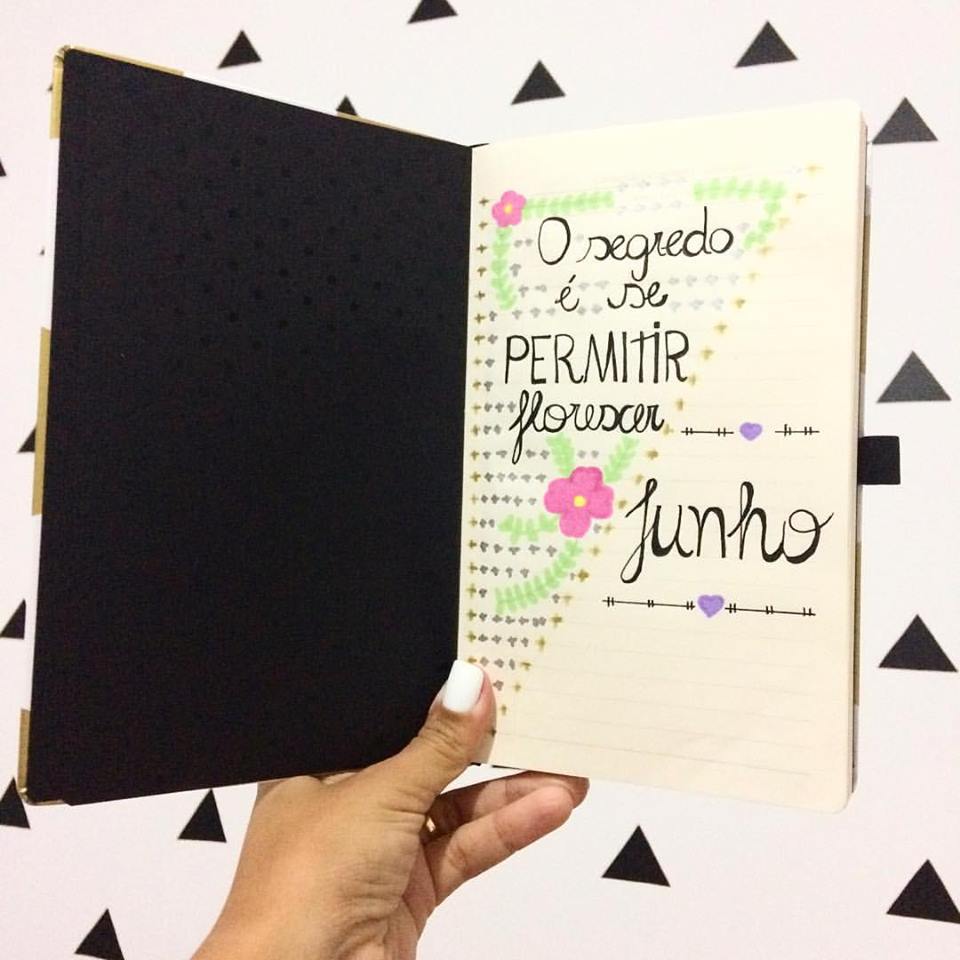 O segredo
é se
PERMITIR
florescer
Junho